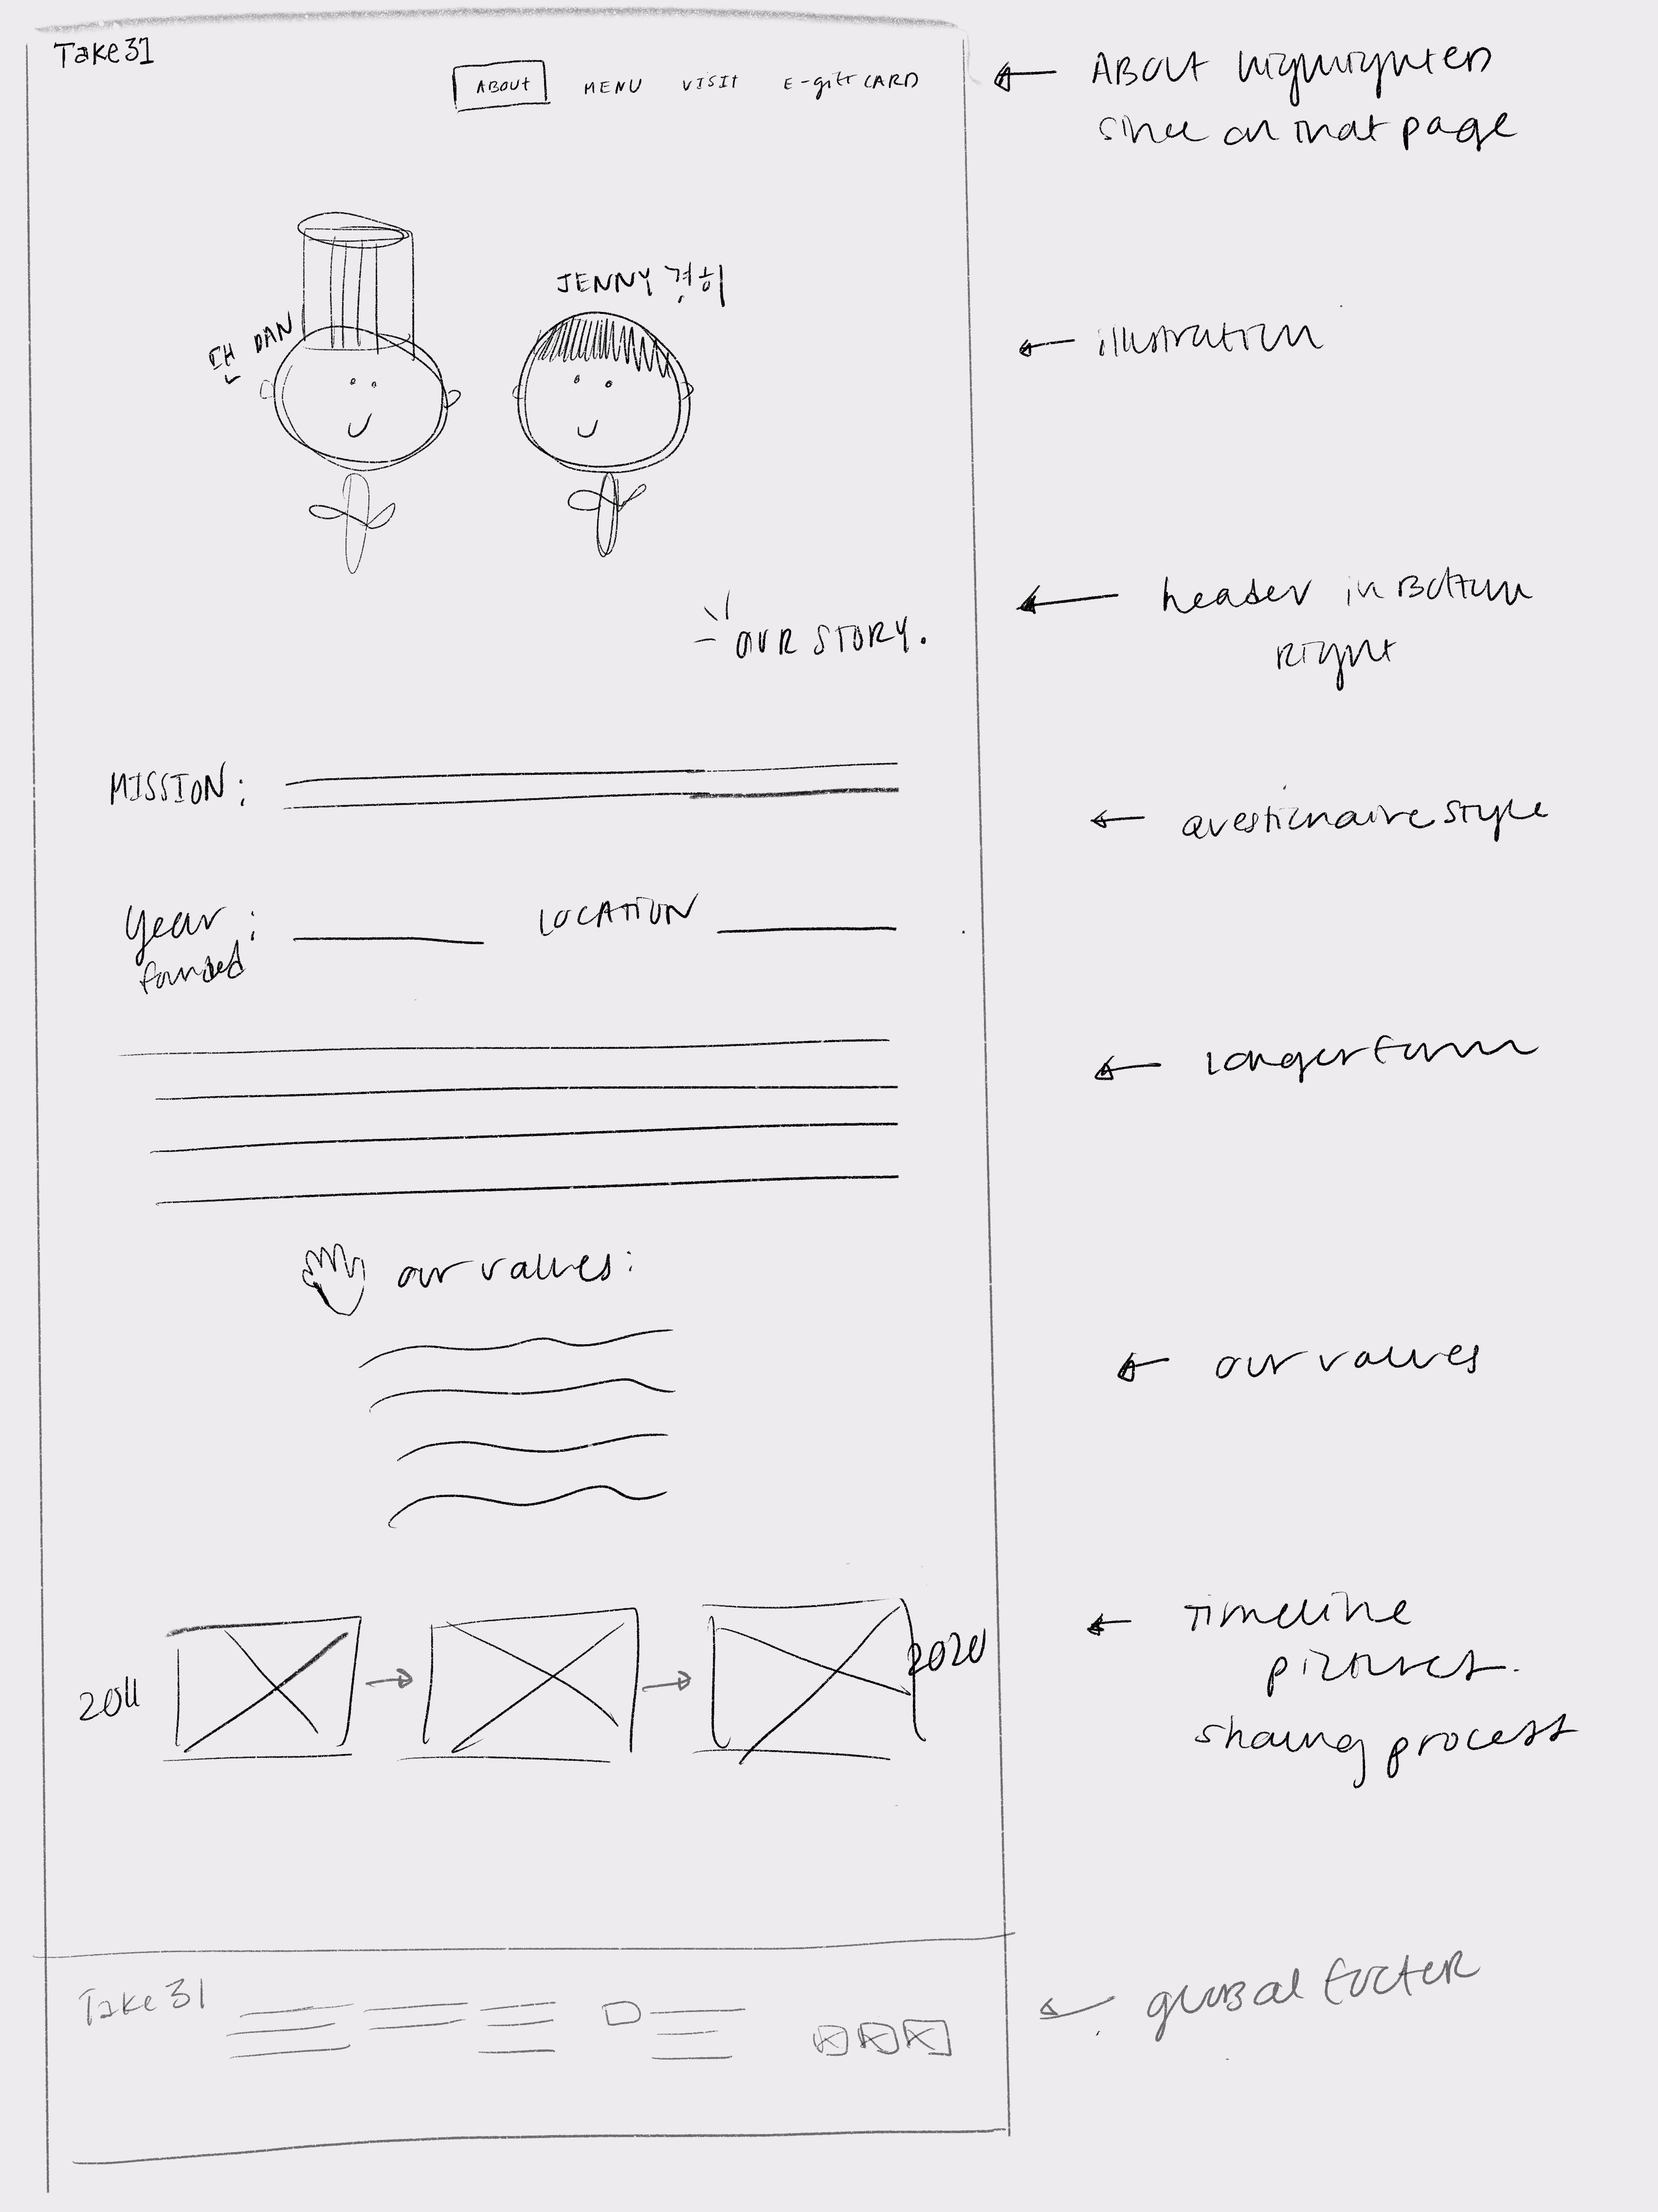 Take31
ABOUT MENU VISIT E-gift CARD
ABOUT highlighted
since on that page
JENNY 경희
DAN
illustration
header in Bottom
right
OUR STORY.
MISSION:
questionaire style
year :
founded
LOCATION
longer form
our values:
our values
2011
2020
Timeline
pictures.
showing process
Take 31
global footer